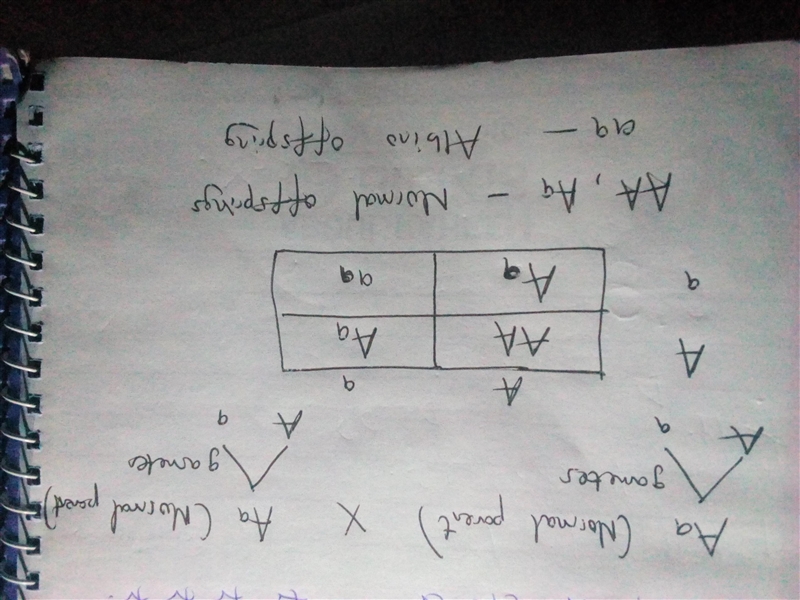 Aa (Normal parent) X Aa (Normal parent)
gametes gametes
A a A a
A a
A AA Aa
a Aa aa
AA, Aa – Normal offsprings
aa – Albino offspring